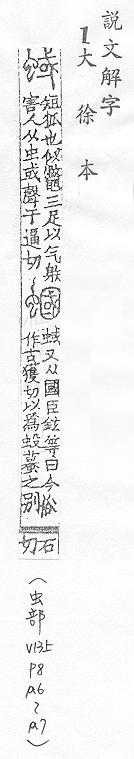 説文解字
1大徐本
短狐也似鼈三足以气䠶
害人从虫或聲于逼切
蜮又从國臣鉉等曰今俗
作古獲切以爲蝦蟇之別
石
切
（虫部 V13上 P8 A.6 ~ A.7）